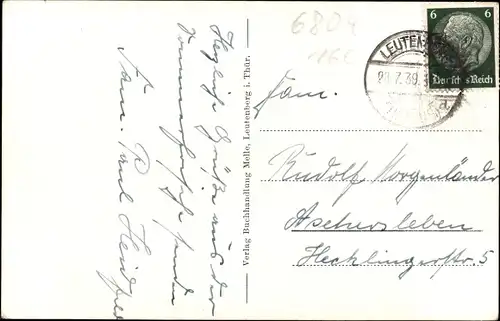 Herzliche Grüße aus der
Sommerfrische senden
Fam. Paul
Verlag Buchhandlung Melle, Leutenberg i. Thür.
6804
LEUTENBERG
7.39
6
Deutsches Reich
Fam.
Rudolf Morgenländer
Aschersleben
Hecklingerstr. 5